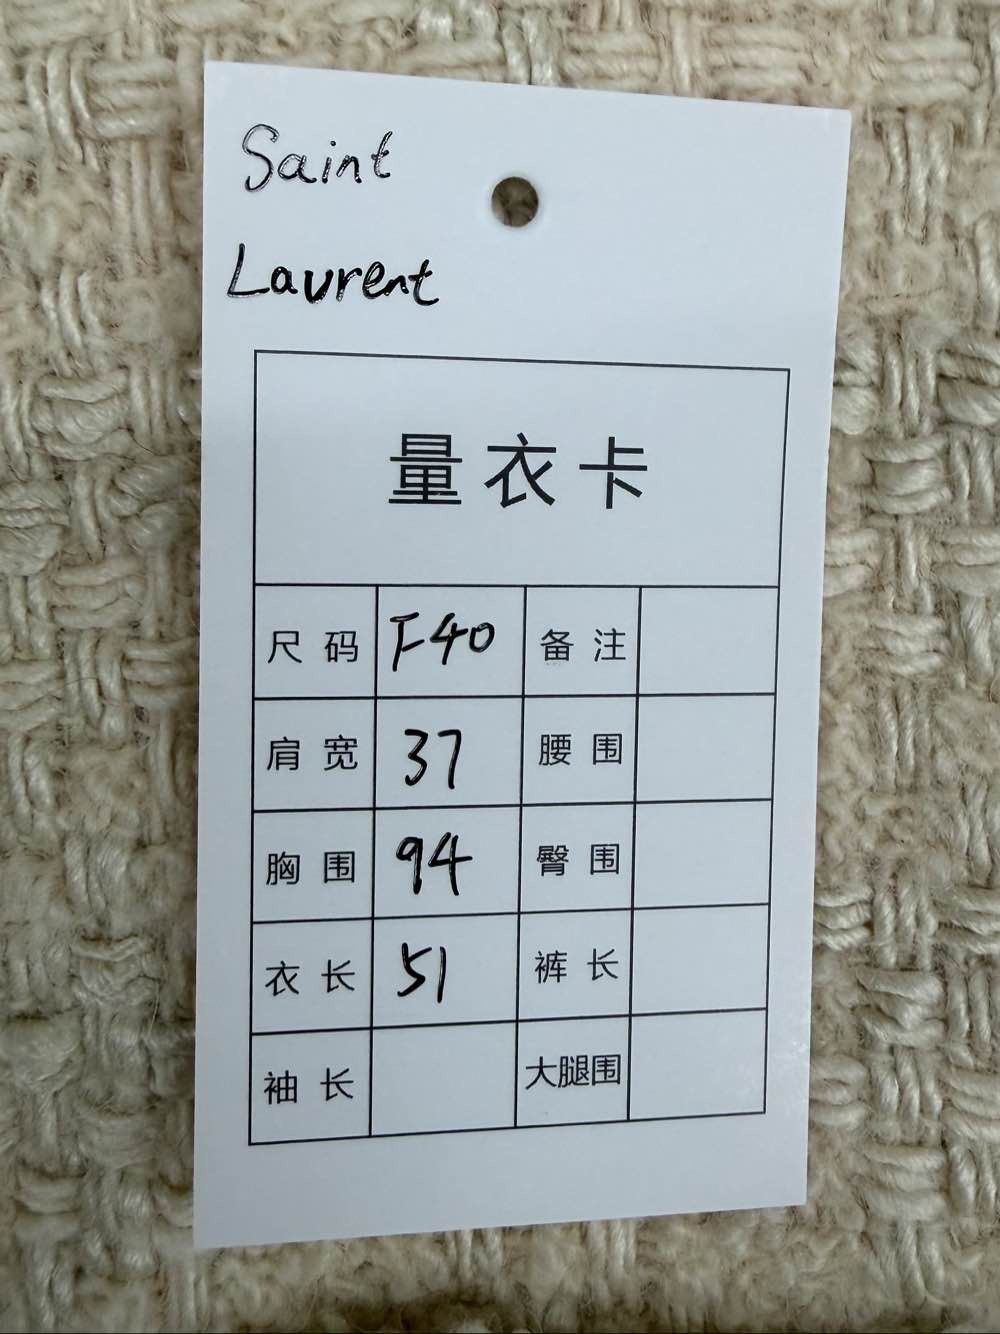 Saint
Laurent
量衣卡
尺码 F40 备注
肩宽 37 腰围
胸围 94 臀围
衣长 51 裤长
袖长 大腿围